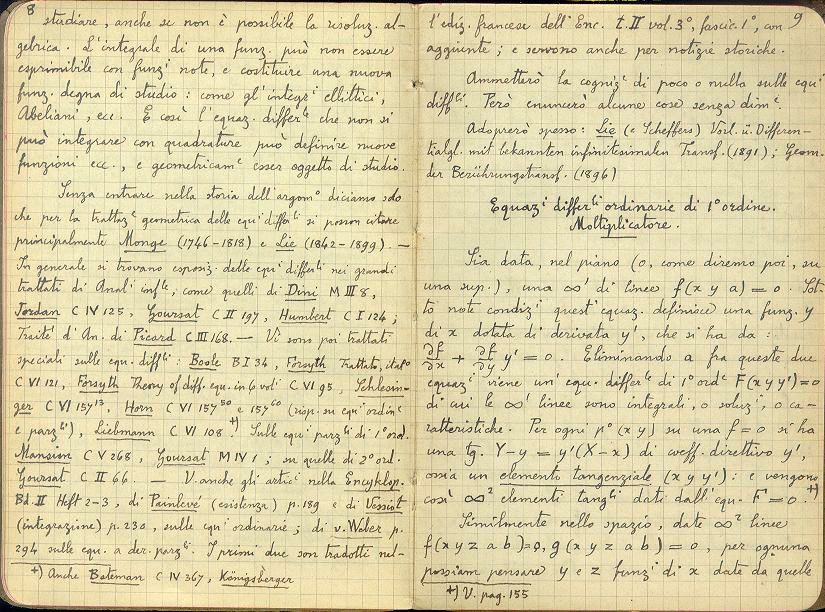 8
studiare, anche se non è possibile la risoluz. al-
gebrica. L'integrale di una funz. può non essere
esprimibile con funzi note, e costituire una nuova
funz. degna di studio: come gl'integri ellittici,
Abeliani, ecc. E così l'equaz. differle che non si
può integrare con quadrature può definire nuove
funzioni ecc., e geometricame esser oggetto di studio.
Senza entrare nella storia dell'argomo diciamo solo
che per la trattaze geometrica delle equi diffli si posson citare
principalmente Monge (1746-1818) e Lie (1842-1899). —
In generale si trovano esposiz. delle equi differli nei grandi
trattati di Anali infle, come quelli di Dini M III 8,
Jordan C IV 125, Goursat C II 197, Humbert C I 124;
Traité d'An. di Picard C III 168. — Vi sono poi trattati
speciali sulle equ. diffli: Boole B I 34, Forsyth Trattato, italo
C VI 121, Forsyth Theory of diff. equ. in 6 voli C VI 95, Schlesin-
ger C VI 157 13, Horn C VI 157 50 e 157 60 (risp. su equi ordine
e parzli), Liebmann C VI 108. +) Sulle equi parzli di 1o ord.
Mansion C V 268, Goursat M IV 1; su quelle di 2o ord.
Goursat C II 66. — V. anche gli artici nella Encyklop.
Bd. II Heft 2-3, di Painlevé (esistenza) p. 189 e di Vessiot
(integrazione) p. 230, sulle equi ordinarie; di v. Weber p.
294 sulle equ. a der. parzli. I primi due son tradotti nel-
+) Anche Bateman C IV 367, Königsberger
9
l'ediz. francese dell'Enc. t. II vol. 3o, fascic. 1o, con
aggiunte; e servono anche per notizie storiche.
Ammetterò la cognize di poco o nulla sulle equi
diffli. Però enuncerò alcune cose senza dime.
Adoprerò spesso: Lie (e Scheffers) Vorl. ü. Differen-
tialgl. mit bekannten infinitesimalen Transf. (1891); Geom.
der Berührungstransf. (1896)
Equazi differli ordinarie di 1o ordine.
Moltiplicatore.
Sia data, nel piano (o, come diremo poi, su
una sup.), una ∞1 di linee f(x y a) = 0. Sot-
to note condizi quest'equaz. definisce una funz. y
di x dotata di derivata y', che si ha da:
∂f/∂x + ∂f/∂y y' = 0. Eliminando a fra queste due
equazi viene un'equ. differle di 1o orde F(x y y') = 0
di cui le ∞1 linee sono integrali, o soluzi, o ca-
ratteristiche. Per ogni po (x y) su una f = 0 si ha
una tg. Y-y = y'(X-x) di coeff. direttivo y',
ossia un elemento tangenziale (x y y'): e vengono
così ∞2 elementi tangli dati dall'equ. F = 0. +)
Similmente nello spazio, date ∞2 linee
f(x y z a b) = 0, g(x y z a b) = 0, per ognuna
possiam pensare y e z funzi di x date da quelle
+) V. pag. 155